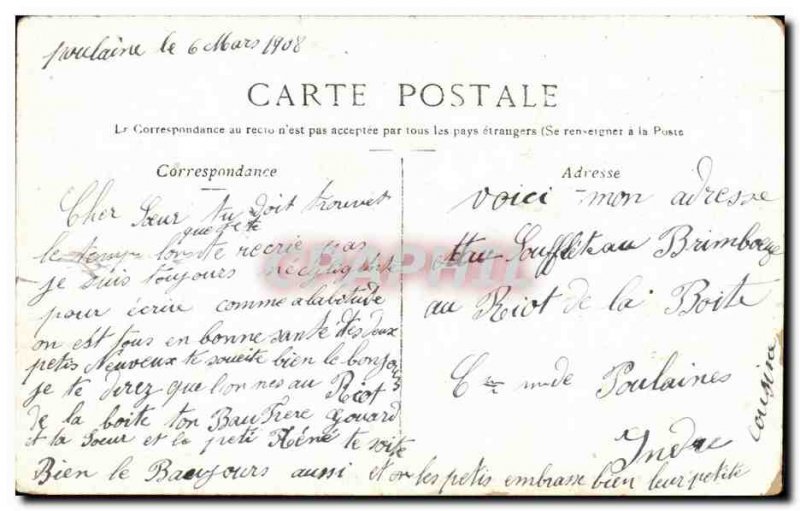 poulaine le 6 Mars 1908
CARTE POSTALE
Le Correspondance au recto n'est pas acceptée par tous les pays étrangers (Se renseigner à la Poste
Correspondance
Cher Sœur tu doit trouver
que je te
le temp lonte recrie pas
je suis toujours
pour écrire comme alabitude
on est tous en bonne santé deux
petis Neuveux te soueite bien le bonjour
je te direz que l'on nes au Riot
de la boite ton Bau Frere Gouard
et ta Soeur et le peti Réné te soite
Bien le Baujours aussi et on les petis embrasse bien leur petite
cousine
Adresse
voici mon adresse
au Brimborge
au Riot de la Boite
Cne de Poulaines
Indre
CPAPHIL